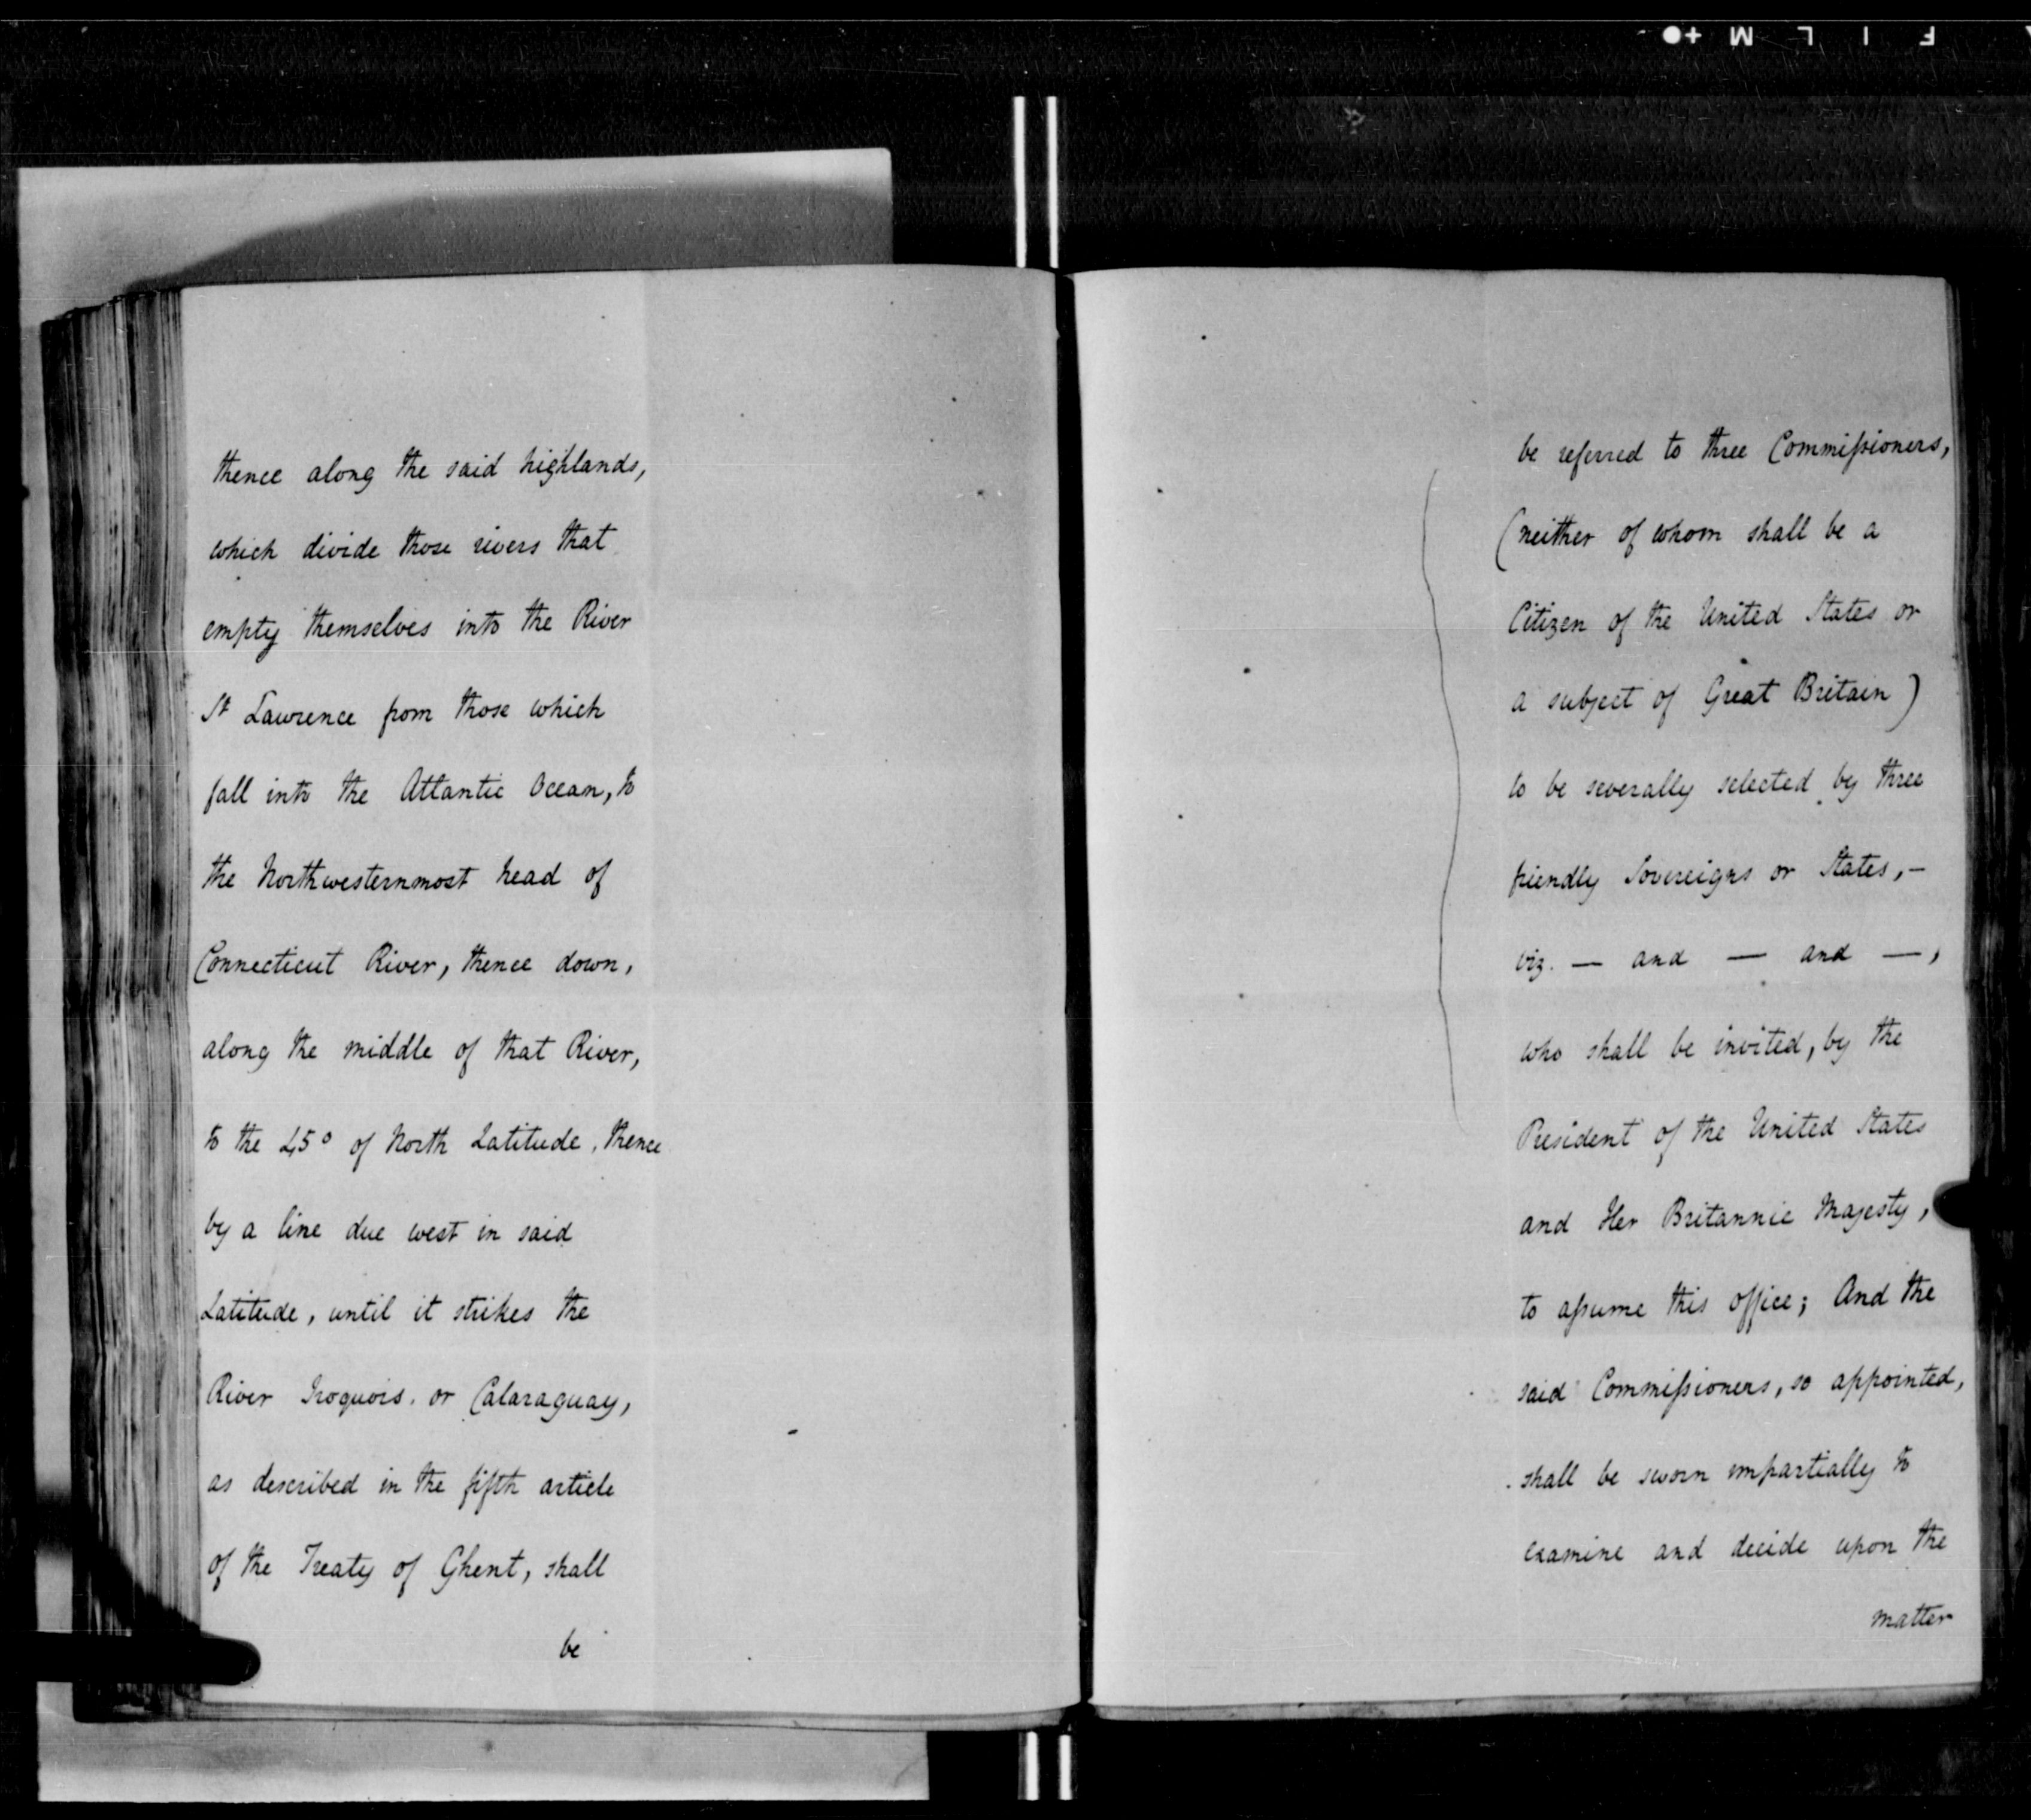 thence along the said highlands,
which divide those rivers that
empty themselves into the River
St Lawrence from those which
fall into the Atlantic Ocean, to
the Northwesternmost head of
Connecticut River, thence down,
along the middle of that River,
to the 45° of North Latitude, thence
by a line due west in said
Latitude, until it strikes the
River Iroquois, or Cataraguay,
as described in the fifth article
of the Treaty of Ghent, shall
be
be referred to three Commissioners,
(neither of whom shall be a
Citizen of the United States or
a subject of Great Britain)
to be severally selected by three
friendly Sovereigns or States, —
viz. — and — and —,
who shall be invited, by the
President of the United States
and Her Britannic Majesty,
to assume this office; And the
said Commissioners, so appointed,
shall be sworn impartially to
examine and decide upon the
matter
FILM